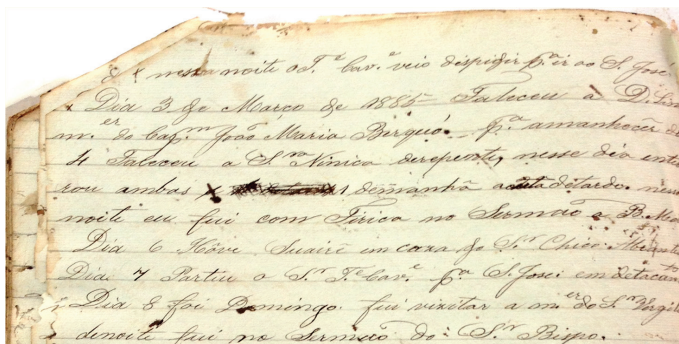 nesta noite o T.e Cav.e veio dispidir p.a ir ao S. José
Dia 3 de Março de 1885 Faleceu a D.
m.er do Cap.m João Maria Berquó. p.a amanhocêr
4 Faleceu a S.ra Ninica derepente, nesse dia ente
rou ambas 1 demanhã a outa detarde. nes
noite eu fui com Tirica no Sermão e B.
Dia 6 Hôve Suairê em caza do S.r Chico
Dia 7 Partiu o S.r T.e Cav.e p.a S. José em detaca
Dia 8 foi Domingo fui vizitar a m.er do S.r
denoite fui no Sermão do S.r Bispo.